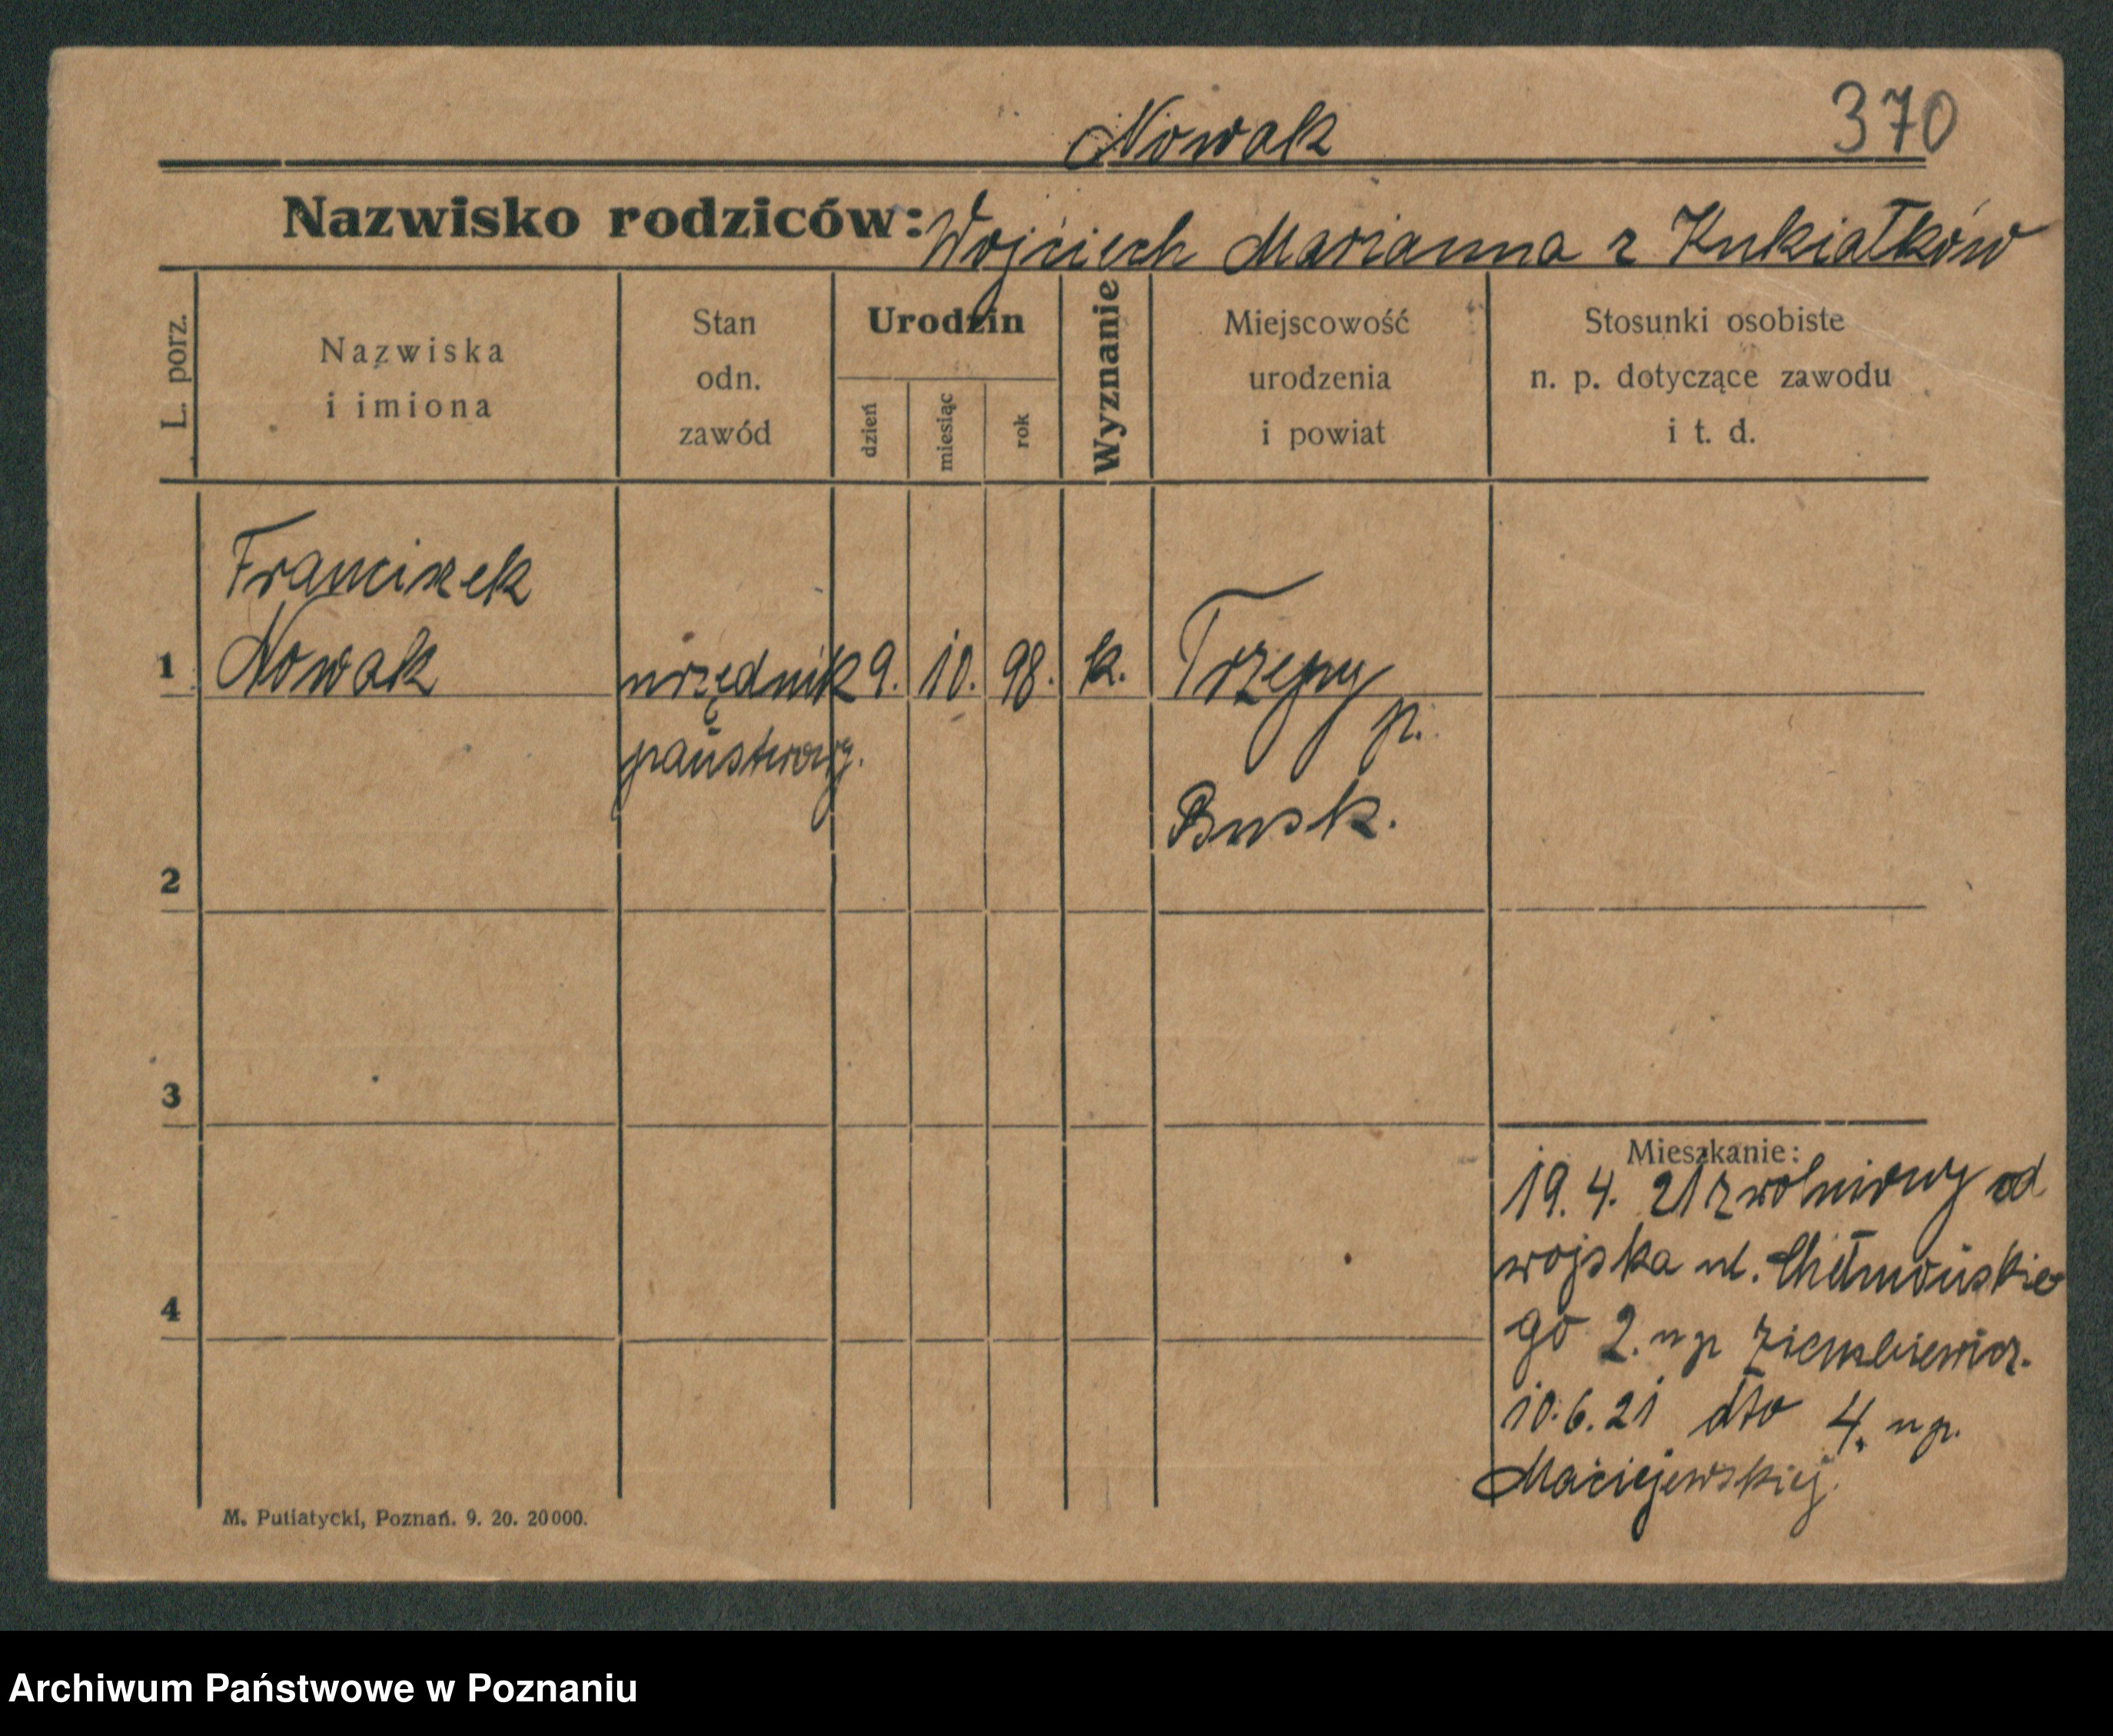 Nowak 370
Nazwisko rodziców: Wojciech Marianna z Kukiałków
L. porz.
Nazwiska
i imiona
Stan
odn.
zawód
Urodzin
dzień
miesiąc
rok
Wyznanie
Miejscowość
urodzenia
i powiat
Stosunki osobiste
n. p. dotyczące zawodu
i t. d.
Franciszek
1 Nowak urzędnik 9. 10. 98. k. Trzepy
państwowy. p.
Busk.
2
3
4
Mieszkanie:
19. 4. 21 zwolniony od
wojska ul. Chełmońskie
go 2. u p
10. 6. 21 dto 4. u p.
Maciejewskiej.
M. Putiatycki, Poznań. 9. 20. 20000.
Archiwum Państwowe w Poznaniu